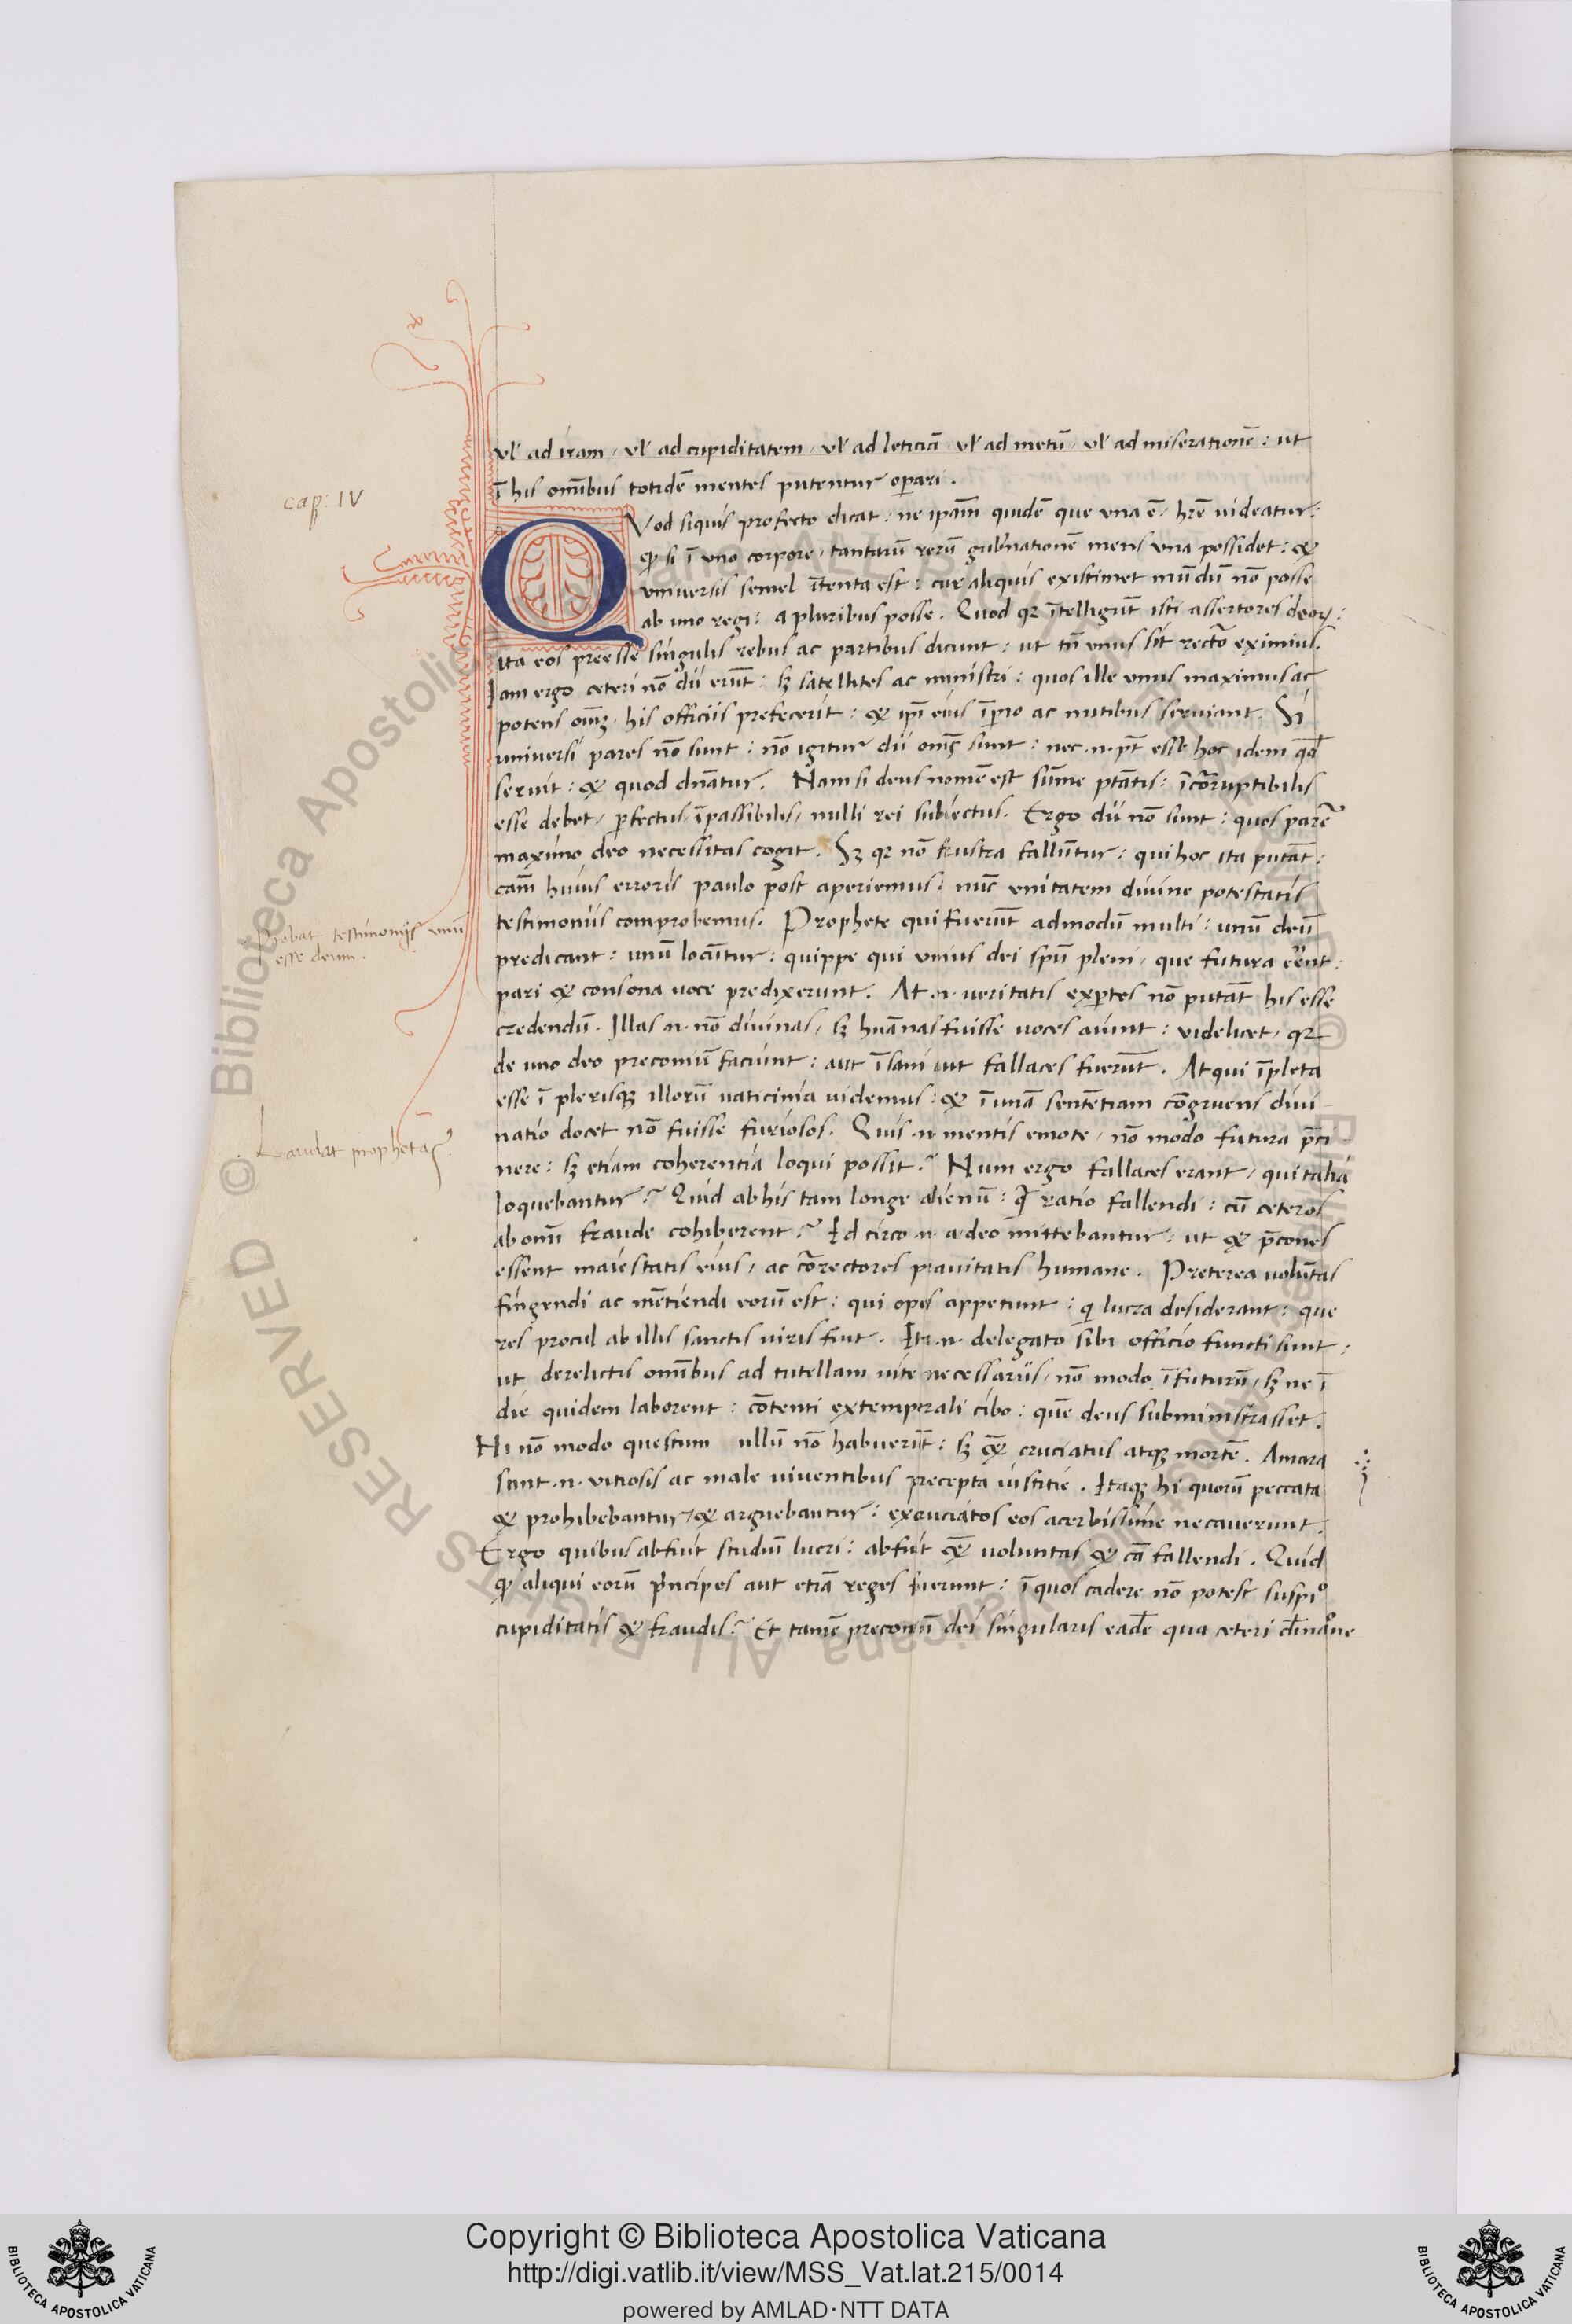 vl' ad iram, vl' ad cupiditatem, vl' ad leticiā vl' ad metū, vl' ad miserationē: ut
ī his omībus totidē mentes putentur oꝑari.
cap: IV
QVod siquis profecto dicat: ne ip̄am quidē que una ē, hr̄e uideatur:
ꝙ si ī uno corpore, tantarū rerū gub'nationē mens una possidet: &
uniuersis semel ītenta est: cur aliquis existimet mūdū nō posse
ab uno regi: a pluribus posse. Quod qr ītelligūt isti assertores deoꝝ:
ita eos preesse singulis rebus ac partibus dicunt: ut tn̄ unus sit rector eximius.
Iam ergo ceteri nō dii erūt: sꝫ satellites ac ministri: quos ille unus maximus ac
potens oīuꝫ, his officiis prefecerit: & ip̄i eius īꝑio ac nutibus seruiant. Si
uniuersi pares nō sunt: nō igitur dii om̄s sunt: nec .n. pt̄ esse hoc idem qd̄
seruit: & quod dn̄atur. Nam si deus nomē est sūme ptātis: īcōruptibilis
esse debet, ꝑfectus, īpassibilis, nulli rei subiectus. Ergo dii nō sunt: quos parē
maximo deo necessitas cogit. Sꝫ qr nō frustra fallūtur: qui hoc ita putāt:
cām huius erroris paulo post aperiemus: nūc unitatem diuine potestatis
testimoniis comprobemus. Prophete qui fuerūt admodū multi: unū deū
Probat testimonijs unū
esse deum.
predicant: unū locūtur: quippe qui unius dei spū pleni, que futura eēnt:
pari & consona uoce predixerunt. At .n. ueritatis exꝑtes nō putāt his esse
credendū. Illas .n. nō diuinas, sꝫ hūanas fuisse uoces aiunt: videlicet, qr
de uno deo preconiū faciunt: aut īsani aut fallaces fuerūt. Atqui īpleta
esse ī plerisqꝫ illorū uaticinia uidemus: & ī unā sentētiam cōgruens diui
Laudat prophetas.
natio docet nō fuisse furiosos. Quis .n. mentis emote, nō modo futura p̄ci
nere: sꝫ etiam coherentia loqui possit? Num ergo fallaces erant, qui talia
loquebantur? Quid ab his tam longe alienū: ꝗ̄ ratio fallendi: cū ceteros
ab omī fraude cohiberent? Id circo .n. a deo mittebantur: ut & p̄cones
essent maiestatis eius, ac cōrectores prauitatis humane. Preterea volūtas
fingendi ac mētiendi eorū est: qui opes appetunt: ꝗ lucra desiderant: que
res procul ab illis sanctis uiris fuit. Ita .n. delegato sibi officio functi sunt:
ut derelictis omībus ad tutellam uite necessariis, nō modo ī futurū, sꝫ ne ī
die quidem laborent: cōtenti extemporali cibo: quē deus subministrasset.
Hi nō modo questum ullū nō habuerūt: sꝫ & cruciatus atqꝫ mortē. Amara
sunt .n. uitiosis ac male uiuentibus precepta iustitie. Itaqꝫ hi quorū peccata
& prohibebantur, & arguebantur: excruciatos eos acerbissime necauerunt.
Ergo quibus abfuit studiū lucri: abfuit & uoluntas & cā fallendi. Quid
ꝙ aliqui eorū prīcipes aut etiā reges fuerunt: ī quos cadere nō potest suspi°
cupiditatis & fraudis? Et tamē preconiū dei singularis eadē qua ceteri diīnaº̄ne
Copyright © Biblioteca Apostolica Vaticana
http://digi.vatlib.it/view/MSS_Vat.lat.215/0014
powered by AMLAD·NTT DATA
BIBLIOTECA APOSTOLICA VATICANA
BIBLIOTECA APOSTOLICA VATICANA